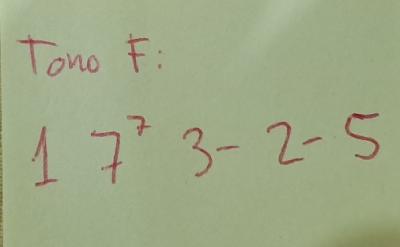 Tono F:
1 7⁷ 3- 2- 5